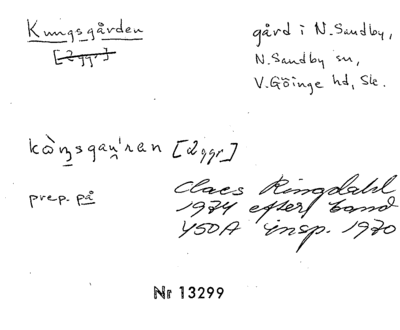 Kungsgården
[2 ggr]
gård i N. Sandby,
N. Sandby sn,
V. Göinge hd, Sk.
kòŋsgaṇ'ran [2 ggr]
prep. på
Claes Ringdahl
1974 efter band
450A insp. 1970
Nr 13299